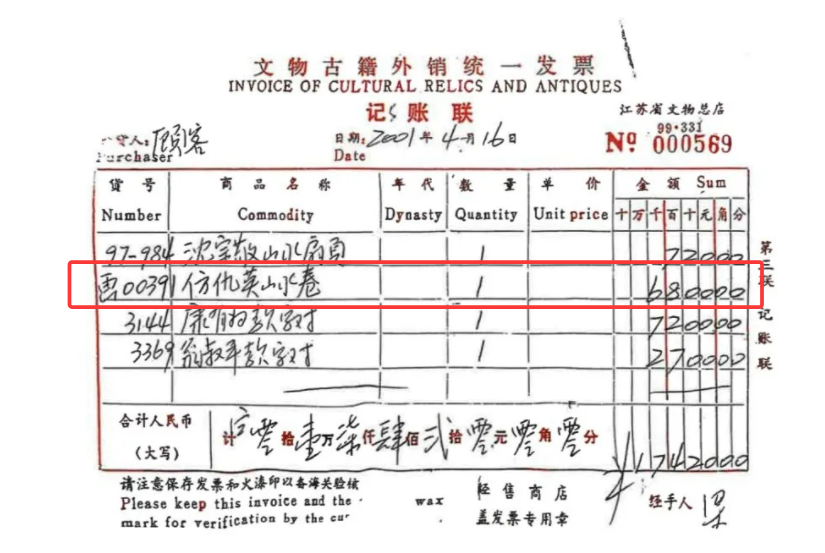 文物古籍外销统一发票
INVOICE OF CULTURAL RELICS AND ANTIQUES
记账联
江苏省文物总店
99·331
货人:顾客
日期:2001年4月16日
№ 000569
Purchaser
Date
货号 商品名称 年代 数量 单价 金额 Sum
Number Commodity Dynasty Quantity Unit price 十万千百十元角分
97-984 沈宗敬山水扇页 1 72000
00391 仿仇英山水卷 1 680000
3144 康有为款字对 1 720000
3369 翁叔平款字对 1 270000
合计人民币
(大写)
计 零拾壹万柒仟肆佰贰拾零元零角零分
¥1742000
第三联 记账联
请注意保存发票和火漆印以备海关验核
Please keep this invoice and the wax
mark for verification by the
经售商店
盖发票专用章
经手人